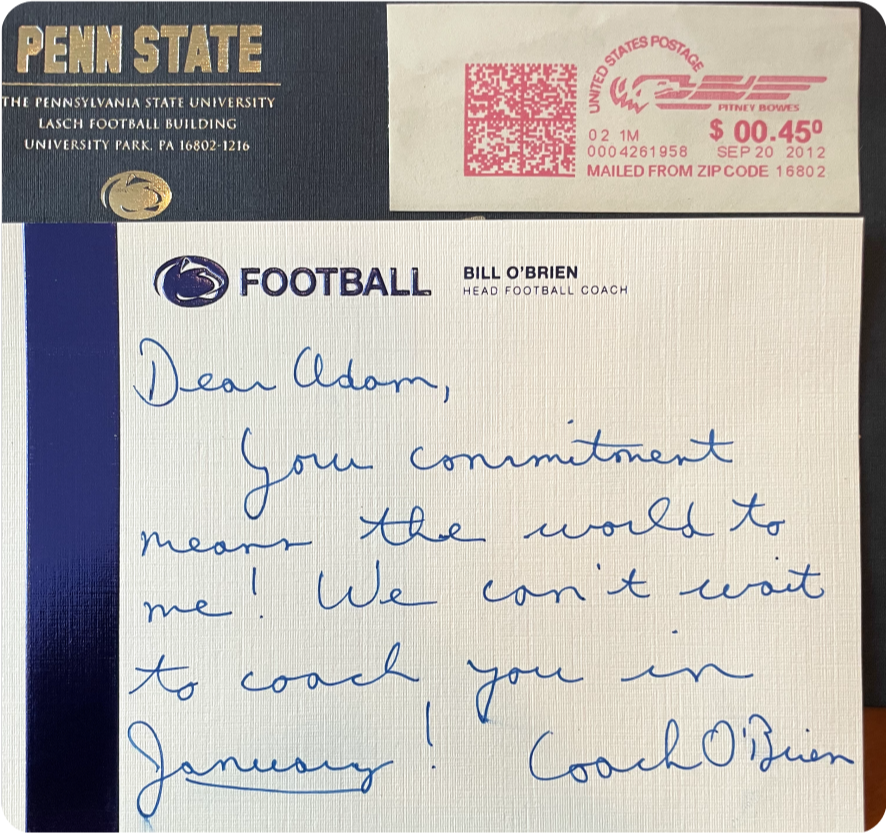 PENN STATE
THE PENNSYLVANIA STATE UNIVERSITY
LASCH FOOTBALL BUILDING
UNIVERSITY PARK, PA 16802-1216
UNITED STATES POSTAGE
PITNEY BOWES
02 1M
$ 00.45⁰
0004261958 SEP 20 2012
MAILED FROM ZIP CODE 16802
FOOTBALL
BILL O'BRIEN
HEAD FOOTBALL COACH
Dear Adam,
Your commitment
means the world to
me! We can't wait
to coach you in
January!
Coach O'Brien